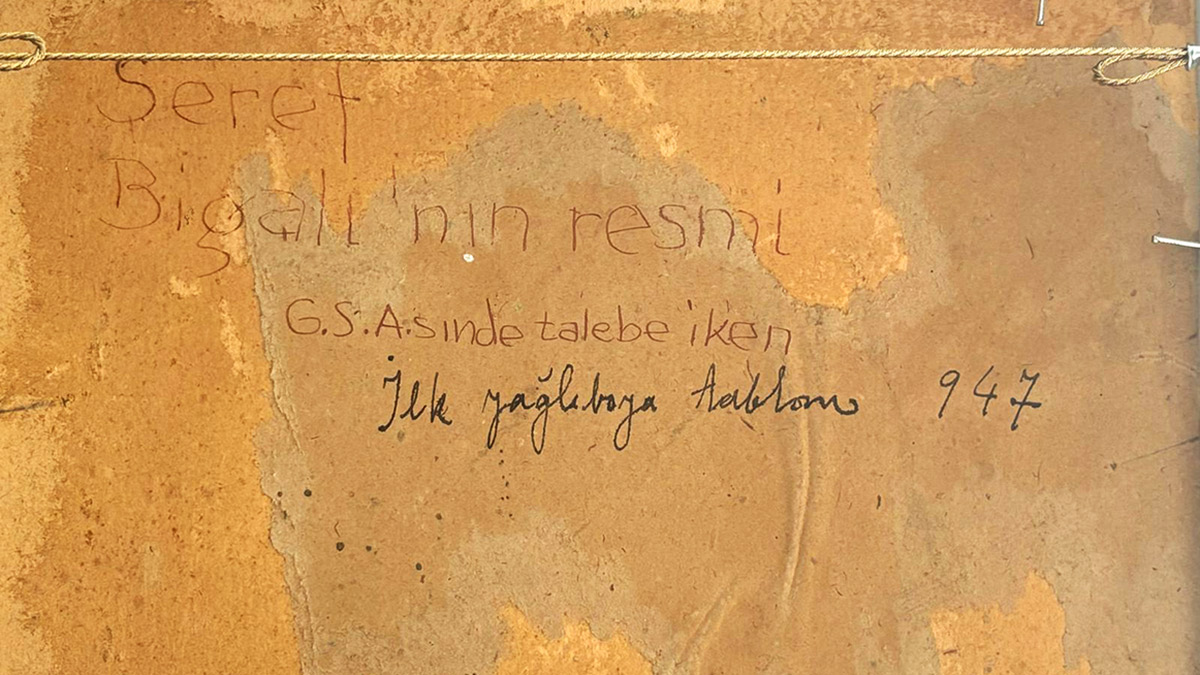 Şeref
Bigalı'nın resmi
G.S.A.sında talebe iken
İlk yağlıboya tablom 947